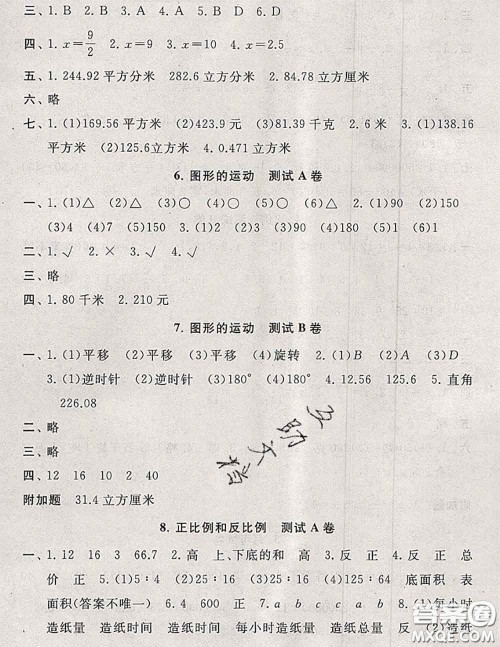 三、1. B 2. B 3. A 4. A 5. D 6. D
四、1. x=9/2 2. x=9 3. x=10 4. x=2.5
五、1. 244.92 平方分米 282.6 立方分米 2. 84.78 立方厘米
六、略
七、1. (1)169.56 平方米 (2)423.9 元 (3)81.39 千克 2. 6 米 3. (1)138.16
平方米 (2)125.6 立方米 4. 0.471 立方米
6. 图形的运动 测试 A 卷
一、1. (1)△ (2)△ (3)○ (4)○ (5)△ (6)○ 2. (1)90 (2)150
(3)4 (4)7 (5)150 3. (1)2 (2)3 (3)1 (4)90 (5)1 (6)1
二、1. √ 2. × 3. √ 4. √
三、略
四、1. 80 千米 2. 210 元
7. 图形的运动 测试 B 卷
一、1. (1)平移 (2)平移 (3)平移 (4)旋转 2. (1)B (2)A (3)D
3. (1)逆时针 (2)180° (3)180° 4. 12.56 125.6 5. 直角
226.08
二、略
三、略
四、12 16 10 2 40
附加题 31.4 立方厘米
8. 正比例和反比例 测试 A 卷
一、1. 12 16 3 66.7 2. 高 上、下底的和 高 3. 反 正 正 总
价 正 5. (1)5∶4 (2)5∶4 (3)25∶16 (4)125∶64 底面积 表
面积(答案不唯一) 6. 4 600 正 7. a b c c a b 8. (1)每小时
造纸量 造纸时间 造纸时间 每小时造纸量 造纸总量 反 (2)造纸
互助文档
答案圈
MXQE.COM